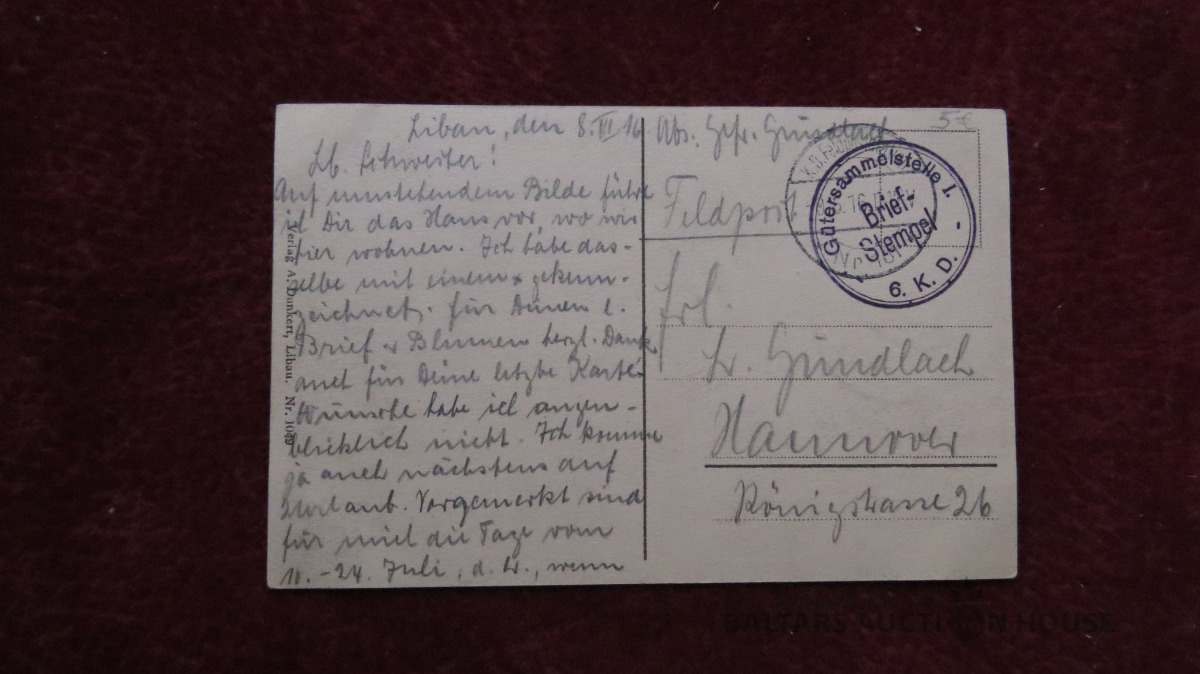 Libau, den 8.VI 16
Lb. Schwester!
Auf umstehendem Bilde führe
ich Dir das Haus vor, wo wir
hier wohnen. Ich habe das-
selbe mit einem x gekenn-
zeichnet. Für Deinen l.
Brief u Blumen herzl. Dank
auch für Deine letzte Karte.
Wünsche habe ich augen-
blicklich nicht. Ich komme
ja auch nächstens auf
Urlaub. Vorgemerkt sind
für mich die Tage vom
11.-24. Juli, d. h., wenn
Verlag A. Dunkert, Libau. Nr. 1089
Abs. Gefr. Gundlach
5 €
Feldpost
Gütersammelstelle I.
Brief-
Stempel
6. K. D.
Frl.
Gundlach
Hannover
Königstrasse 26
BALTARS AUCTION HOUSE